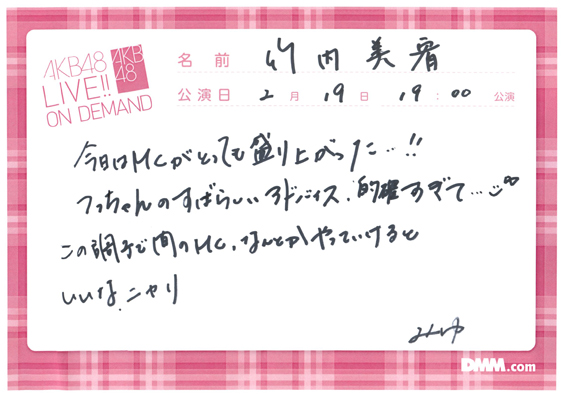 AKB48
LIVE!!
ON DEMAND
AKB
48
名前 竹内美宥
公演日 2月19日 19:00 公演
今日はMCがとっても盛り上がった…!!
つっちゃんのすばらしいアドバイス、的確すぎて…
この調子で間のMC、なんとかやっていけると
いいな ニヤリ
みゆ
DMM.com